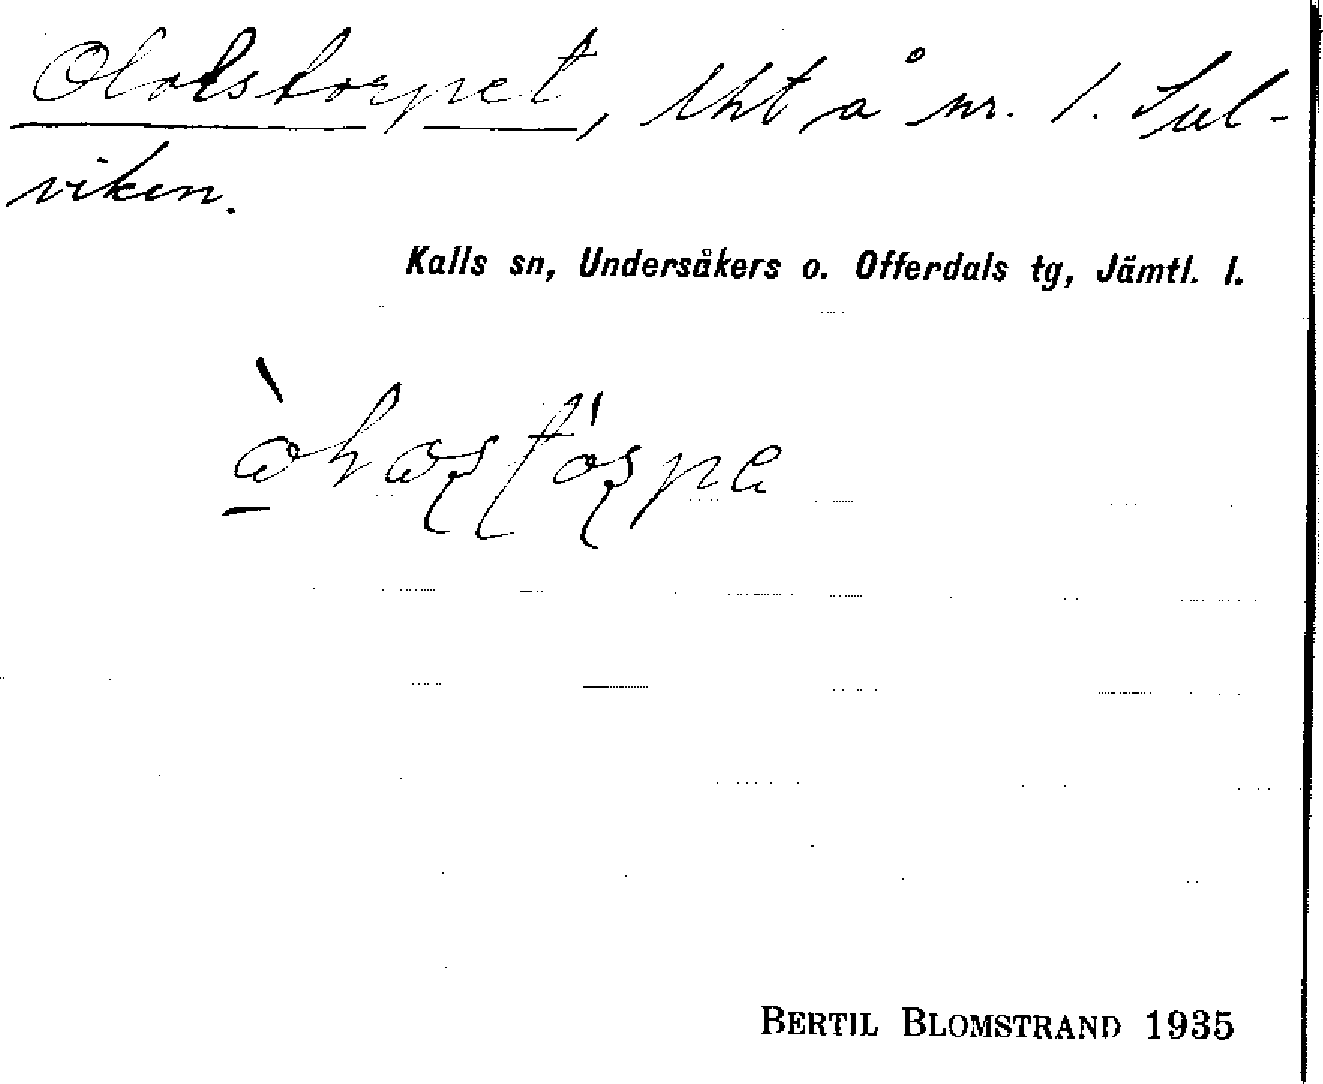 Olofstorpet, lht å nr. 1. Sul-
viken.
Kalls sn, Undersåkers o. Offerdals tg, Jämtl. l.
BERTIL BLOMSTRAND 1935